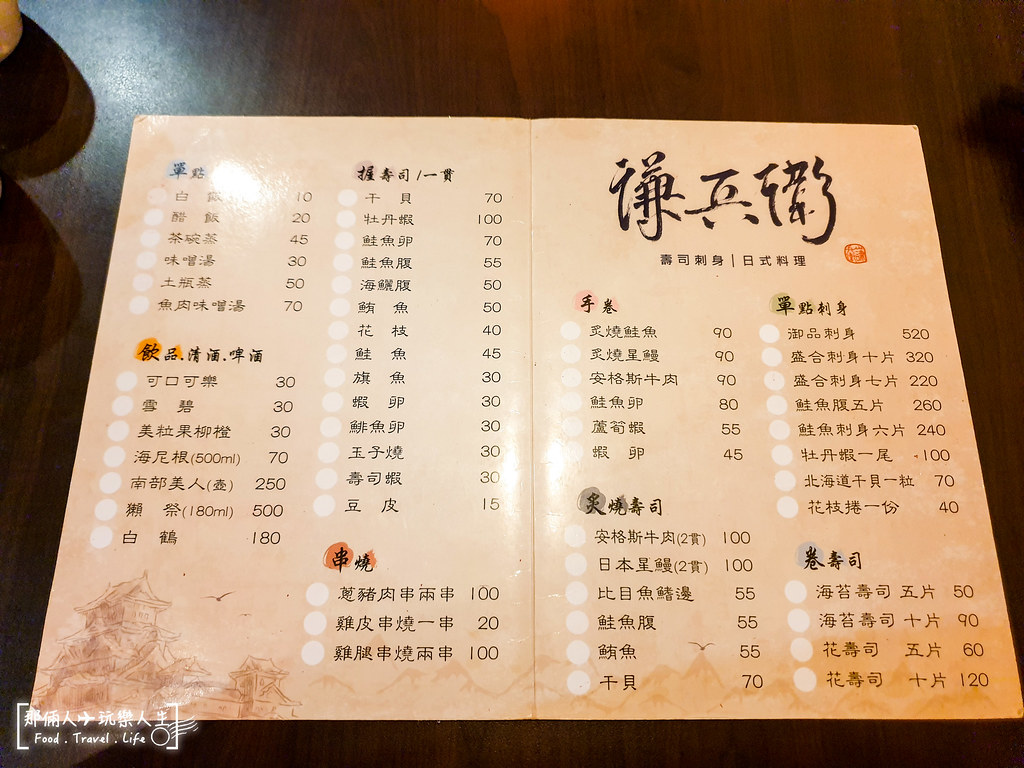 單點
白飯 10
醋飯 20
茶碗蒸 45
味噌湯 30
土瓶蒸 50
魚肉味噌湯 70
飲品.清酒.啤酒
可口可樂 30
雪碧 30
美粒果柳橙 30
海尼根(500ml) 70
南部美人(壺) 250
獺祭(180ml) 500
白鶴 180
握壽司/一貫
干貝 70
牡丹蝦 100
鮭魚卵 70
鮭魚腹 55
海鱺腹 50
鮪魚 50
花枝 40
鮭魚 45
旗魚 30
蝦卵 30
鯡魚卵 30
玉子燒 30
壽司蝦 30
豆皮 15
串燒
蔥豬肉串兩串 100
雞皮串燒一串 20
雞腿串燒兩串 100
謙兵衛
壽司刺身|日式料理
手卷
炙燒鮭魚 90
炙燒星鰻 90
安格斯牛肉 90
鮭魚卵 80
蘆筍蝦 55
蝦卵 45
炙燒壽司
安格斯牛肉(2貫) 100
日本星鰻(2貫) 100
比目魚鰭邊 55
鮭魚腹 55
鮪魚 55
干貝 70
單點刺身
御品刺身 520
盛合刺身十片 320
盛合刺身七片 220
鮭魚腹五片 260
鮭魚刺身六片 240
牡丹蝦一尾 100
北海道干貝一粒 70
花枝捲一份 40
卷壽司
海苔壽司 五片 50
海苔壽司 十片 90
花壽司 五片 60
花壽司 十片 120
那倆人玩樂人生
Food . Travel . Life